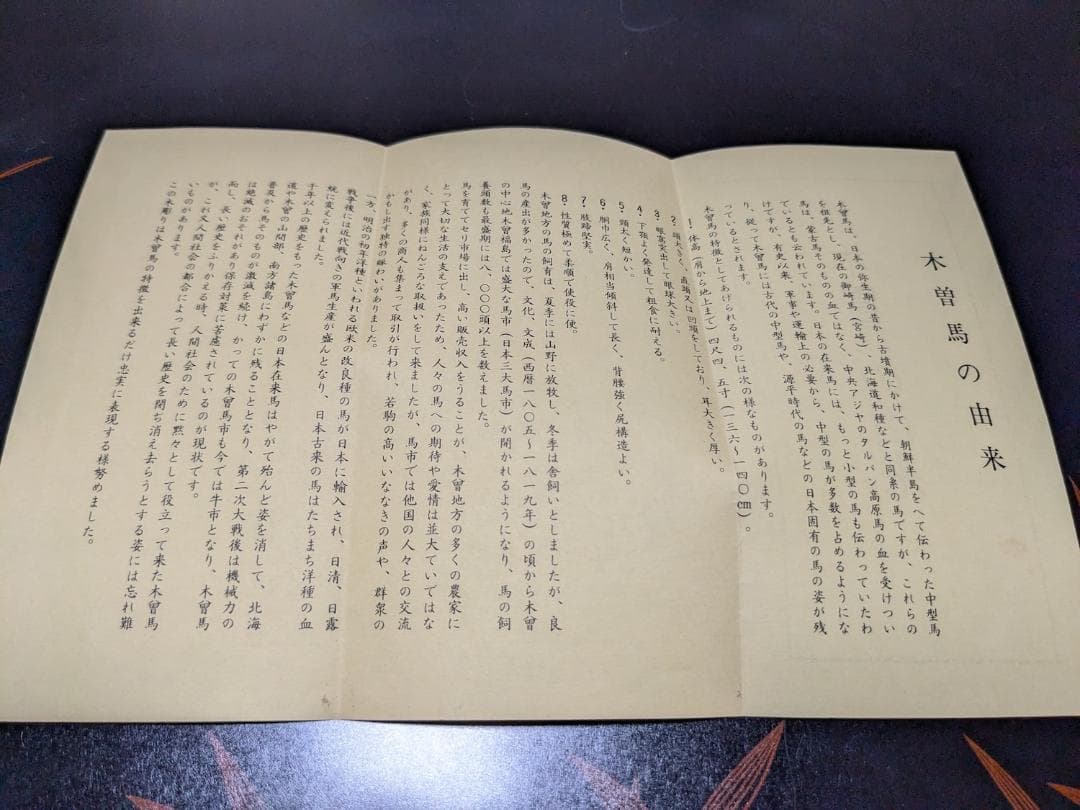 木曽馬の由来
木曾馬は、日本の弥生期の昔から古墳期にかけて、朝鮮半島をへて伝わった中型馬
を祖先とし、現在の御崎馬(宮崎)、北海道和種などと同系の馬ですが、これらの
馬は、蒙古馬そのものの血ではなく、中央アジヤのタルパン高原馬の血を受けつい
ているとも云われています。日本の在来馬には、もっと小型の馬も伝わっていたわ
けですが、有史以来、軍事や運輸上の必要から、中型の馬が多数を占めるようにな
り、従って木曾馬には古代の中型馬や、源平時代の馬などの日本固有の馬の姿が残
っているとされます。
木曾馬の特徴としてあげられるものには次の様なものがあります。
1.体高(肩から地上まで)四尺四、五寸(一三六〜一四〇cm)。
2.頭大きく、直頭又は凹頭をしており、耳大きく厚い。
3.眼窩突出して眼球大きい。
4.下顎よく発達して粗食に耐える。
5.頸太く短かい。
6.胴巾広く、肩相当傾斜して長く、背腰強く尻構造よい。
7.肢蹄堅実。
8.性質極めて柔順で使役に便。
木曾地方の馬の飼育は、夏季には山野に放牧し、冬季は舎飼いとしましたが、良
馬の産出が多かったので、文化、文成(西暦一八〇五〜一八一九年)の頃から木曾
の中心地木曾福島では盛大な馬市(日本三大馬市)が開かれるようになり、馬の飼
養頭数も最盛期には八、〇〇〇頭以上を数えました。
馬を育ててセリ市場に出し、高い販売収入をうることが、木曾地方の多くの農家に
とって大切な生活の支えであったため、人々の馬への期待や愛情は並大ていではな
く、家族同様にねんごろな取扱いをして来ましたが、馬市では他国の人々との交流
があり、多くの商人も集まって取引が行われ、若駒の高いいななきの声や、群衆の
かもし出す独特の賑わいがありました。
一方、明治の初年洋種といわれる欧米の改良種の馬が日本に輸入され、日清、日露
戦争後には近代戦向きの軍馬生産が盛んとなり、日本古来の馬はたちまち洋種の血
統に変えられました。
千年以上の歴史をもった木曾馬などの日本在来馬はやがて殆んど姿を消して、北海
道や木曾の山間部、南方諸島にわずかに残ることとなり、第二次大戦後は機械力の
普及から馬そのものが激減を続け、かっての木曾馬市も今では牛市となり、木曾馬
は絶滅のおそれがあり保存対策に苦慮されているのが現状です。
高し、長い歴史をふりかえる時、人間社会のために黙々として役立って来た木曾馬
が、これ又人間社会の都合によって長い歴史を閉ぢ消え去らうとする姿には忘れ難
いものがあります。
この木彫りは木曾馬の特徴を出来るだけ忠実に表現する様努めました。